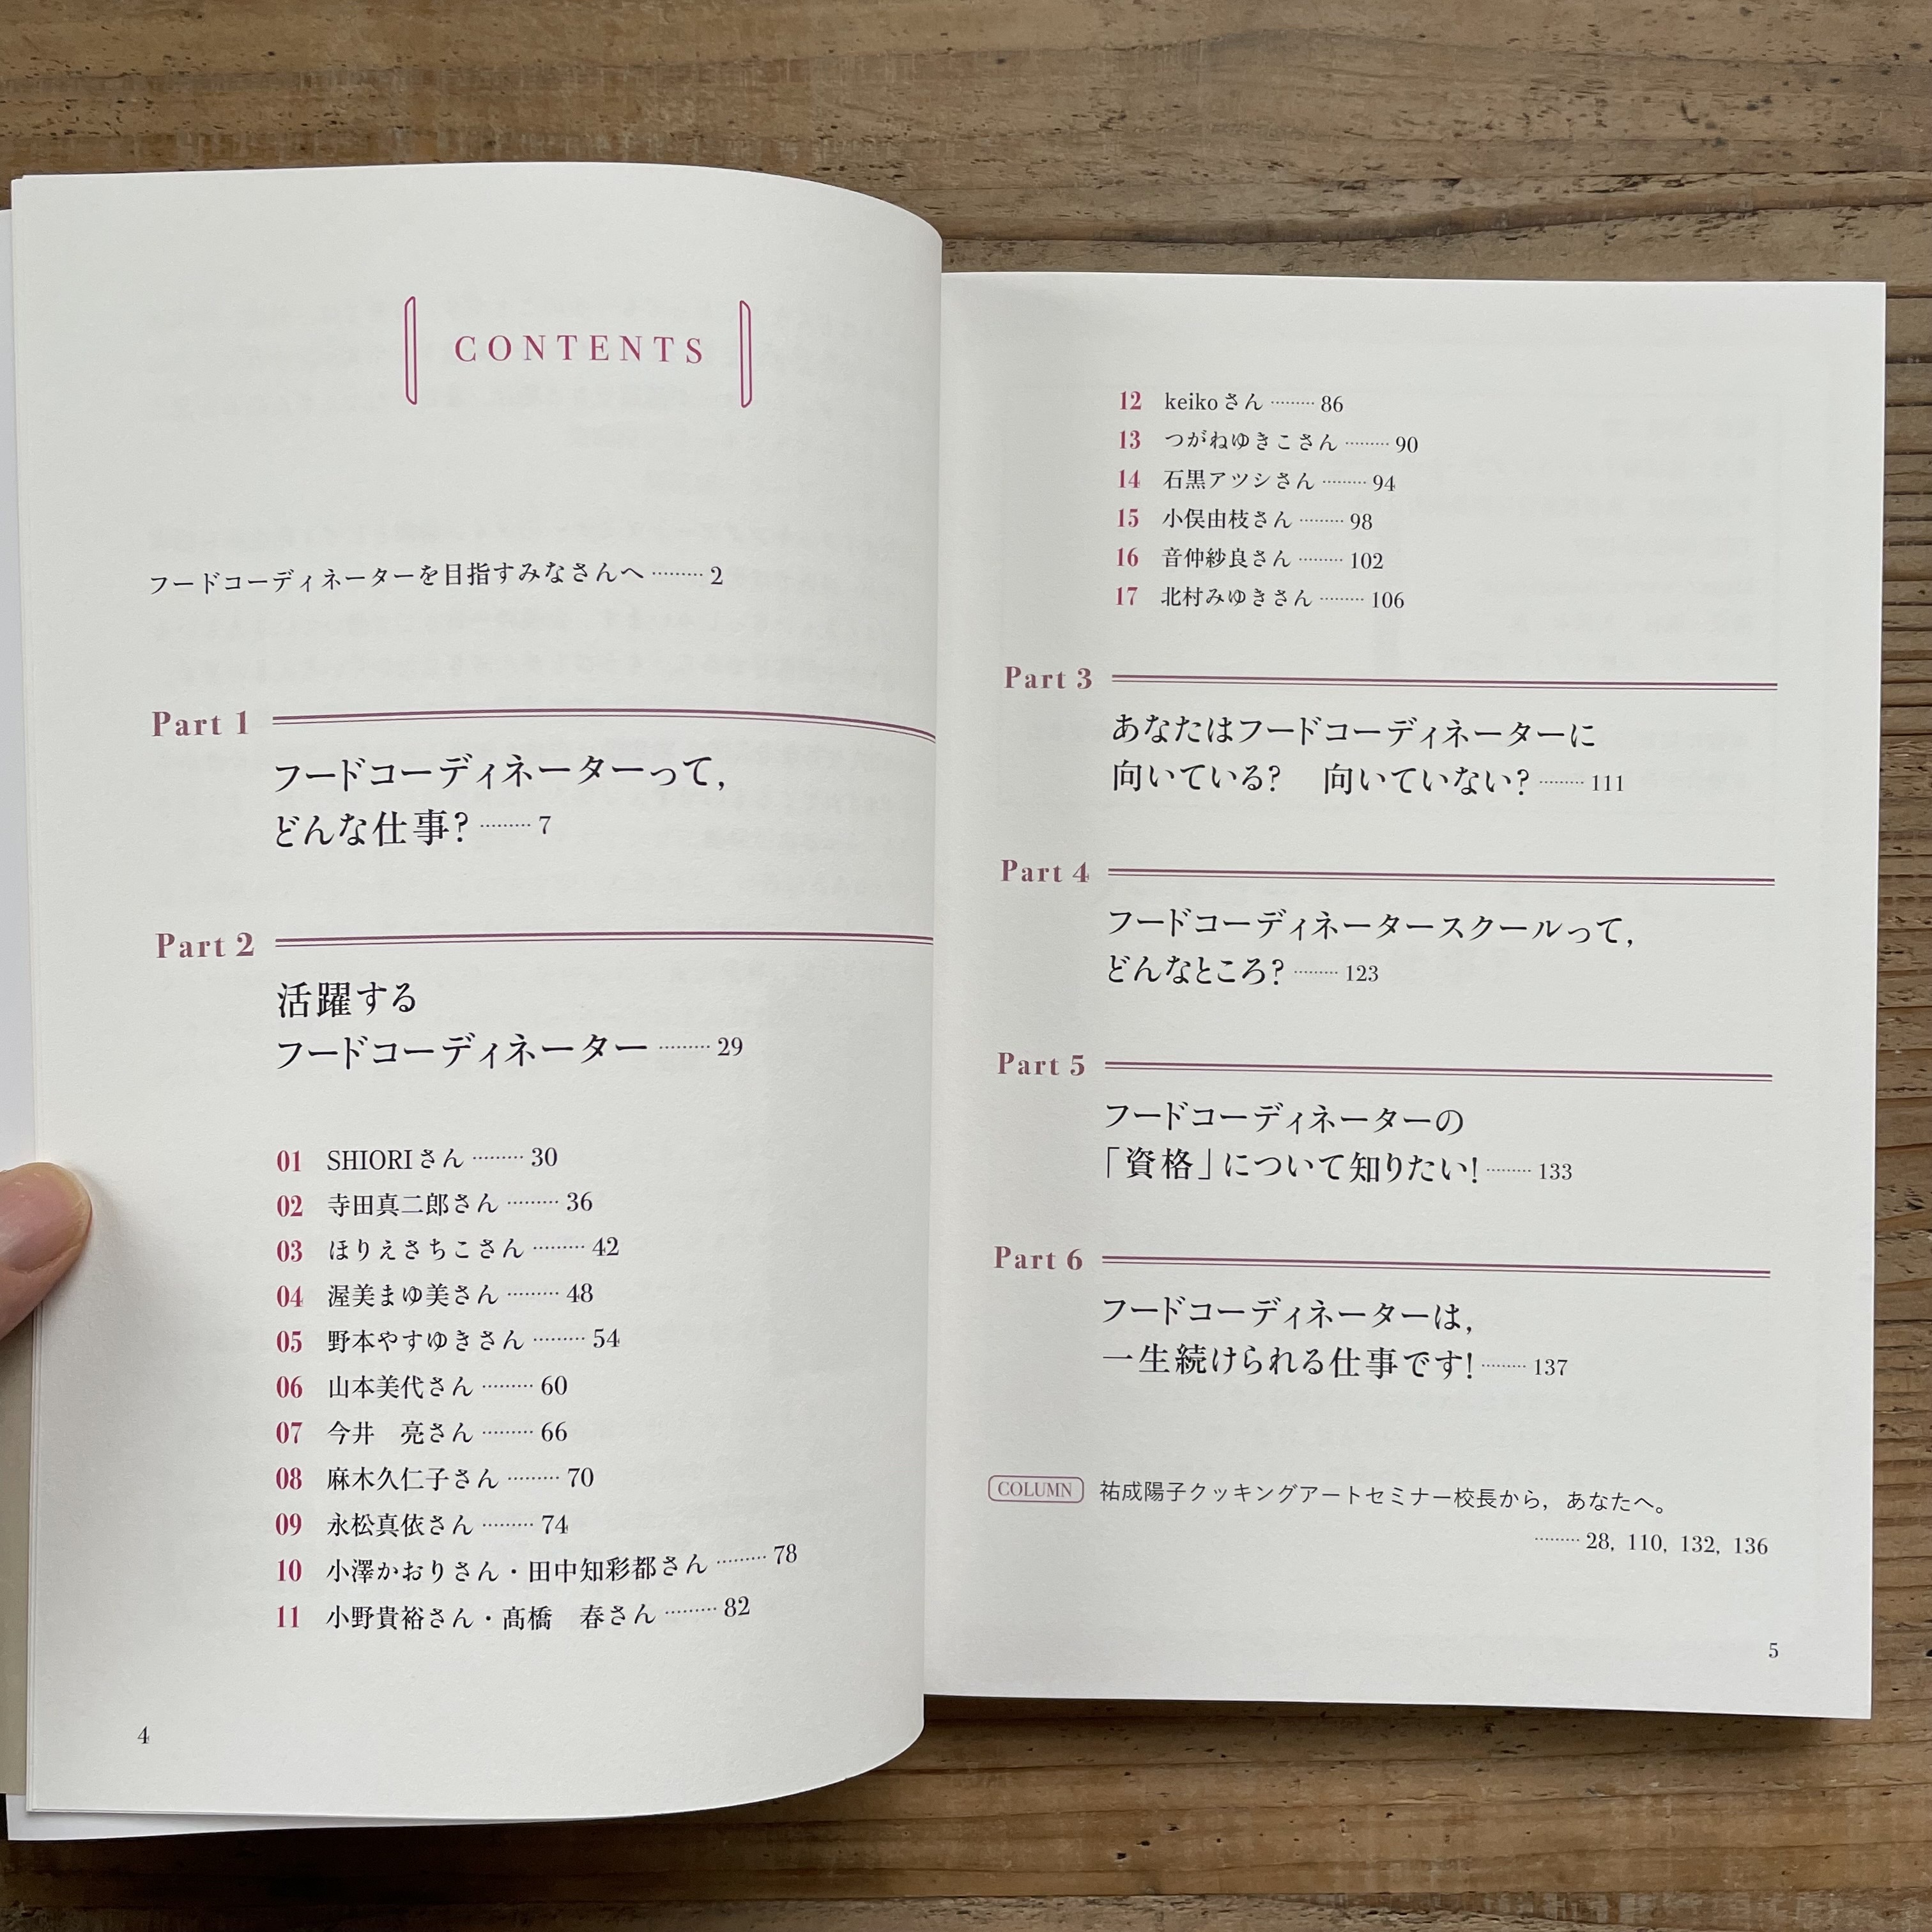 CONTENTS
フードコーディネーターを目指すみなさんへ ……… 2
Part 1
フードコーディネーターって，
どんな仕事？ ……… 7
Part 2
活躍する
フードコーディネーター ……… 29
01 SHIORIさん ……… 30
02 寺田真二郎さん ……… 36
03 ほりえさちこさん ……… 42
04 渥美まゆ美さん ……… 48
05 野本やすゆきさん ……… 54
06 山本美代さん ……… 60
07 今井　亮さん ……… 66
08 麻木久仁子さん ……… 70
09 永松真依さん ……… 74
10 小澤かおりさん・田中知彩都さん ……… 78
11 小野貴裕さん・髙橋　春さん ……… 82
4
12 keikoさん ……… 86
13 つがねゆきこさん ……… 90
14 石黒アツシさん ……… 94
15 小俣由枝さん ……… 98
16 音仲紗良さん ……… 102
17 北村みゆきさん ……… 106
Part 3
あなたはフードコーディネーターに
向いている？　向いていない？ ……… 111
Part 4
フードコーディネータースクールって，
どんなところ？ ……… 123
Part 5
フードコーディネーターの
「資格」について知りたい！ ……… 133
Part 6
フードコーディネーターは，
一生続けられる仕事です！ ……… 137
COLUMN 祐成陽子クッキングアートセミナー校長から，あなたへ。
……… 28, 110, 132, 136
5